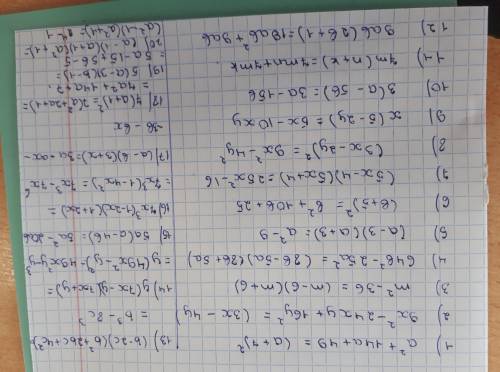 1) a² + 14a + 49 = (a + 7)²
2) 9x² - 24xy + 16y² = (3x - 4y)
3) m² - 36 = (m - 6)(m + 6)
4) 64b² - 25a² = (8b - 5a)(8b + 5a)
5) (a - 3)(a + 3) = a² - 9
6) (b + 5)² = b² + 10b + 25
7) (5x - 4)(5x + 4) = 25x² - 16
8) (3x - 2y)² = 9x² - 4y²
9) x(5 - 2y) = 5x - 10xy
10) 3(a - 5b) = 3a - 15b
11) 7m(n + k) = 7mn + 7mk
12) 9ab(2b + 1) = 18ab² + 9ab
13) (b - 2c)(b² + 2bc + 4c²)
= b³ - 8c³
14) y(7x - y)(7x + y) =
= y(49x² - y²) = 49x² - y³
15) 5a(a - 4b) = 5a² - 20ab
16) 7x³(1 - 2x)(1 + 2x) =
= 7x³(1 - 4x²) = 7x³ - 7x⁶
17) (a - 6)(3 + x) = 3a + ax -
- 36 - 6x
18) 7(a + 1)² = 7(a² + 2a + 1) =
= 7a² + 14a + 7
19) 5(a - 3)(b - 1) =
5a - 15 + 5b - 5
20) (a - 1)(a + 1)(a² + 1) =
(a² - 1)(a² + 1) =